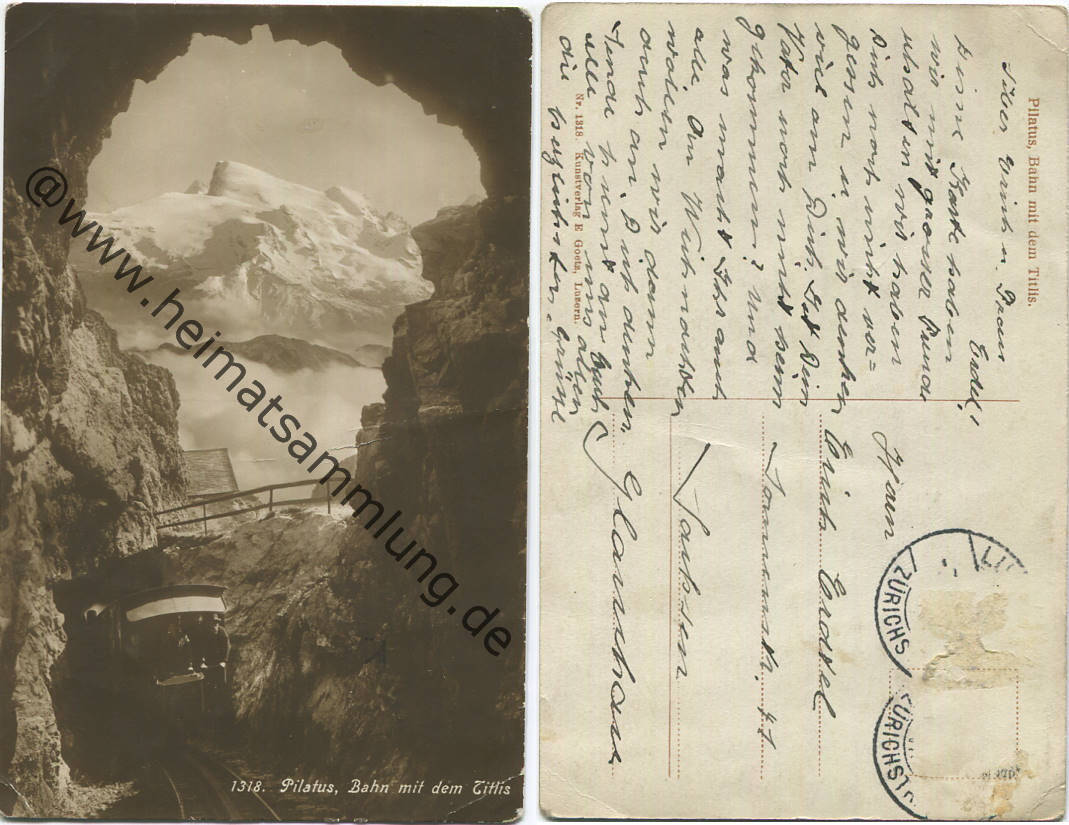 @www.heimatsammlung.de
1318. Pilatus, Bahn mit dem Titlis
Pilatus, Bahn mit dem Titlis.
Nr. 1318. Kunstverlag E. Goetz, Luzern.
Erich u. Frau
Deine Karte haben
wir mit grosser Freude
erhalten wir haben
Dich noch nicht ver=
gessen u. wir denken
viel an Dich. Ist Dein
Vater noch nicht heim
gekommen? Und
was macht Ihr auch
alle. An Weihnachten
wollen wir dann
auch an Dich denken.
u.
alle von uns allen
die herzlichsten Grüsse
Herrn
Erich
47
Sachsen
Glauchau
ZÜRICH5
ZÜRICH5